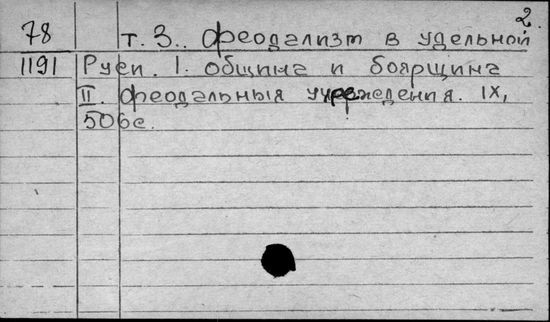 2.
78 т. 3. Феодализм в удельной
1191 Руси. I. община и боярщина
II. феодальныя учреждения. IX,
506с.